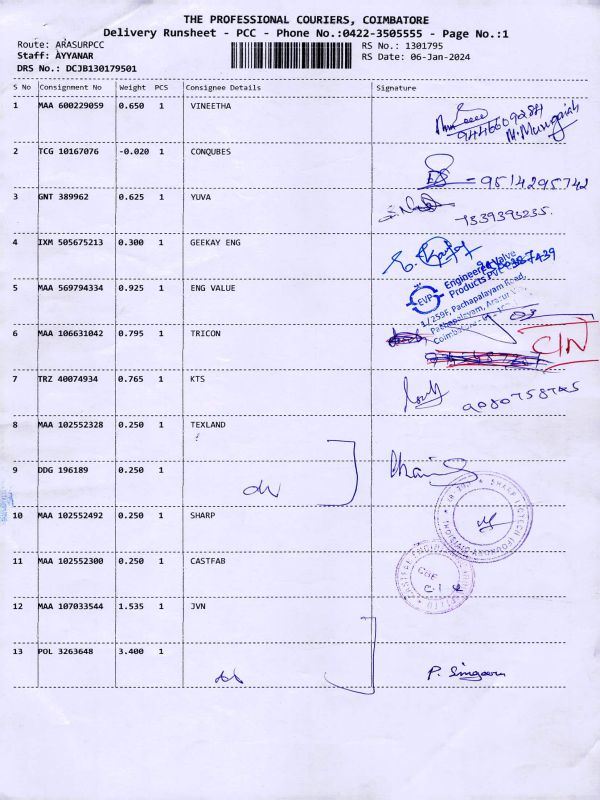 THE PROFESSIONAL COURIERS, COIMBATORE
Delivery Runsheet - PCC - Phone No.:0422-3505555 - Page No.:1
Route: ARASURPCC RS No.: 1301795
Staff: AYYANAR RS Date: 06-Jan-2024
DRS No.: DCJB130179501
S No Consignment No Weight PCS Consignee Details Signature
1 MAA 600229059 0.650 1 VINEETHA
9446609284
M. Murugaiah
2 TCG 10167076 -0.020 1 CONQUBES
= 9514295742
3 GNT 389962 0.625 1 YUVA
4 IXM 505675213 0.300 1 GEEKAY ENG
5 MAA 569794334 0.925 1 ENG VALUE
Engineered Valve
Products PVT
EVP
1/259F, Pachapalayam Road,
Pachapalayam, Arasur
6 MAA 106631042 0.795 1 TRICON
7 TRZ 40074934 0.765 1 KTS
8 MAA 102552328 0.250 1 TEXLAND
9 DDG 196189 0.250 1
10 MAA 102552492 0.250 1 SHARP
11 MAA 102552300 0.250 1 CASTFAB
12 MAA 107033544 1.535 1 JVN
13 POL 3263648 3.400 1